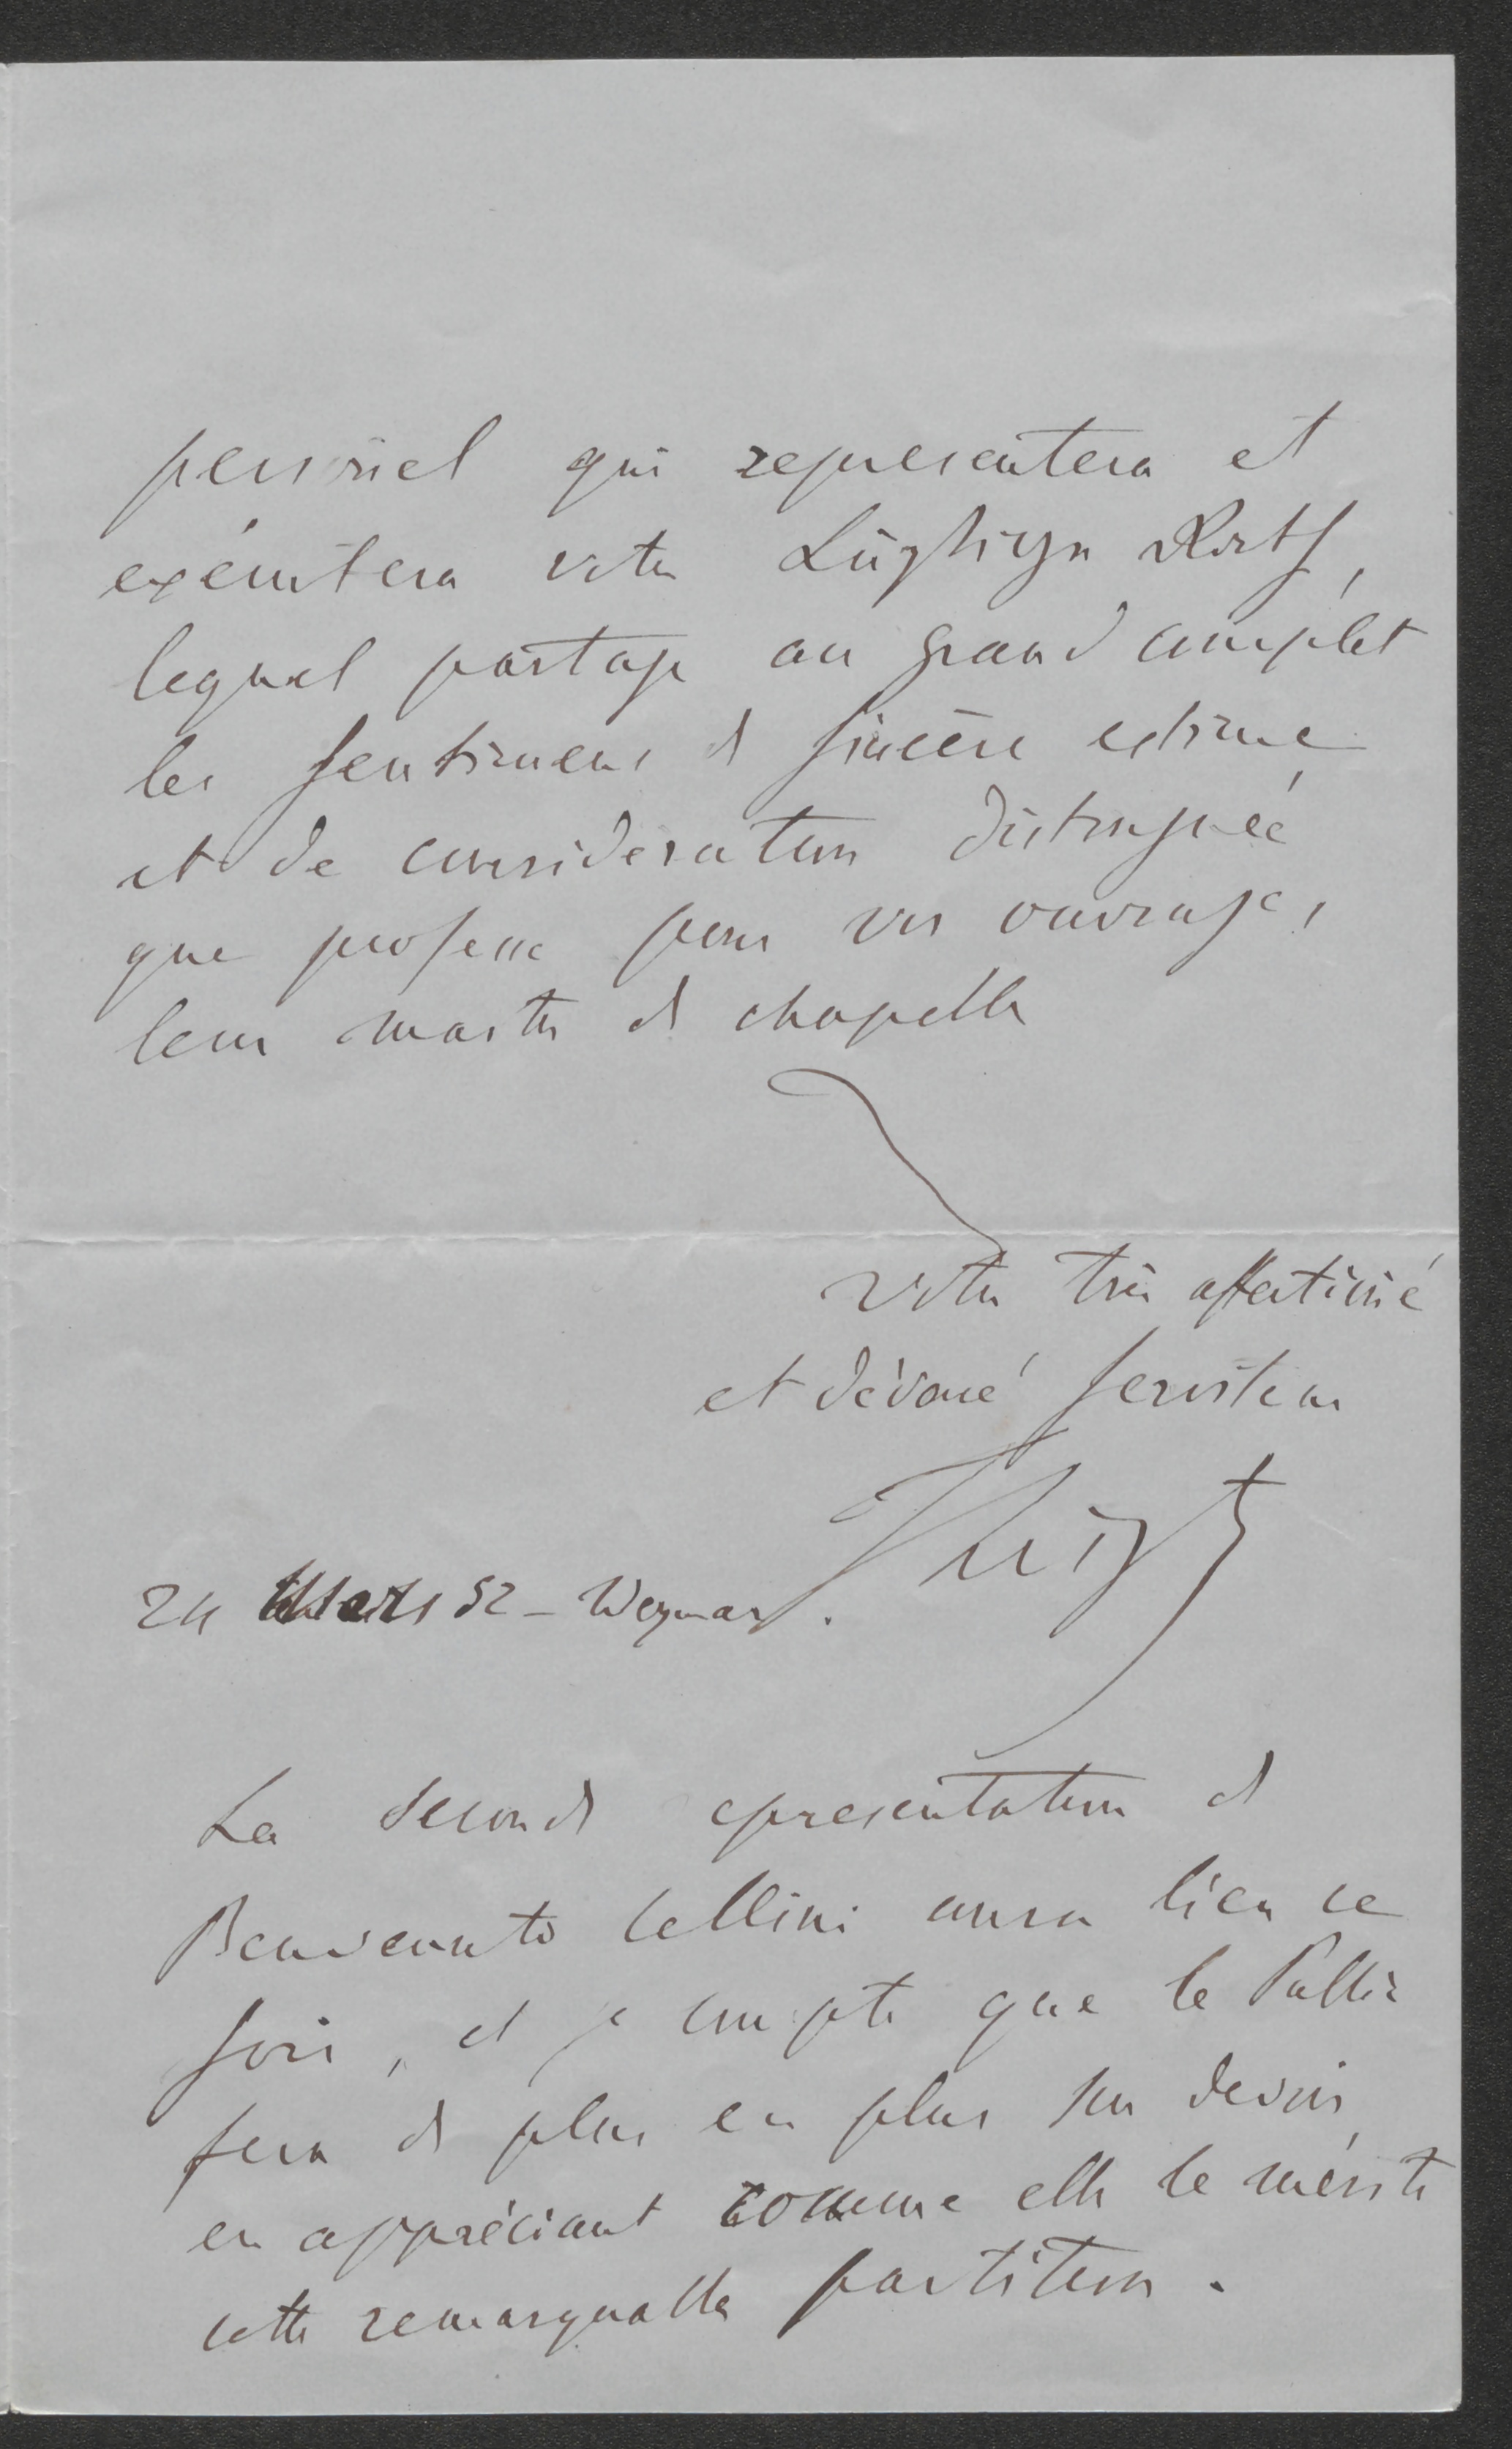 personnel qui representera et
exécutera votre
lequel partage au grand complet
les sentimens de sincère estime
et de consideration distinguée
que professe pour vos ouvrages
leur maitre de chapelle
votre très affectionné
et dévoué serviteur
F Liszt
24 Mars 52 – Weymar.
La seconde representation de
Benvenuto Cellini aura lieu ce
soir, et je compte que le Public
fera de plus en plus son devoir
en appréciant comme elle le mérite
cette remarquable partition.